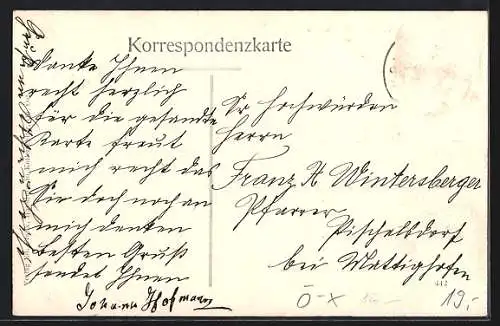 Korrespondenzkarte
Danke Ihnen
recht herzlich
für die gesandte
Karte freut
mich recht das
Sie doch noch an
mich denken
Besten Gruß
sendet Ihnen
Johann Hofmann
Sr Hochwürden
Herrn
Franz H Wintersberger
Pfarrer
Pischelsdorf
bei Mattighofen
Ö-X
19.-